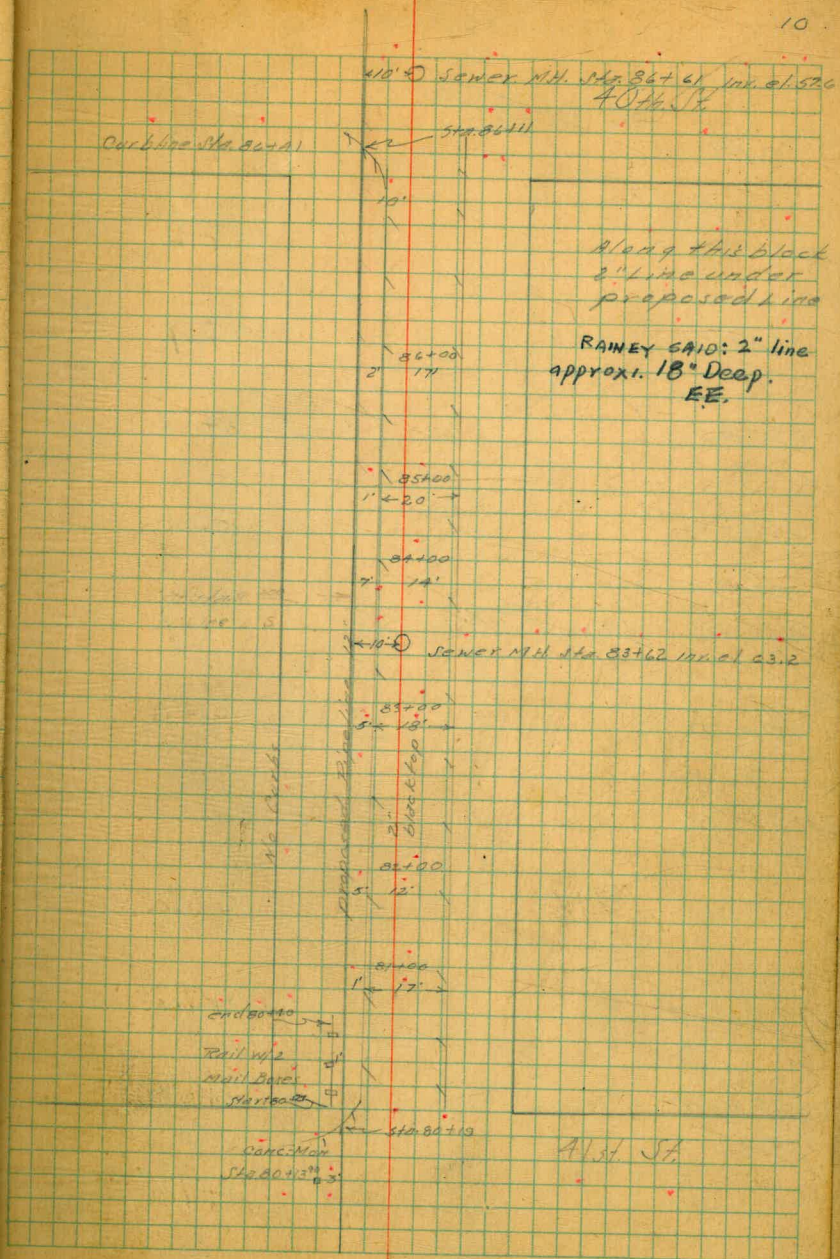 10
10' Sewer M.H. Sta. 86+61 inv. el. 57.6
40th. St.
Sta. 86+11
Curb line Sta. 86+01
10'
Along this block
2" Line under
proposed Line
RAINEY SAID: 2" line
approxi. 18" Deep.
EE.
86+00
2' 17'
85+00
1' 20'
84+00
7' 14'
10' Sewer M.H. Sta. 83+62 inv. el 63.2
83+00
5' 18'
No Curbs
proposed Pipeline 12"
2"
blacktop
82+00
5' 12'
81+00
1' 17'
end 80+40
Rail w/2
Mail Boxes
Start 80
Sta. 80+19
Conc. Mon
Sta. 80+13 3'
41st. St.